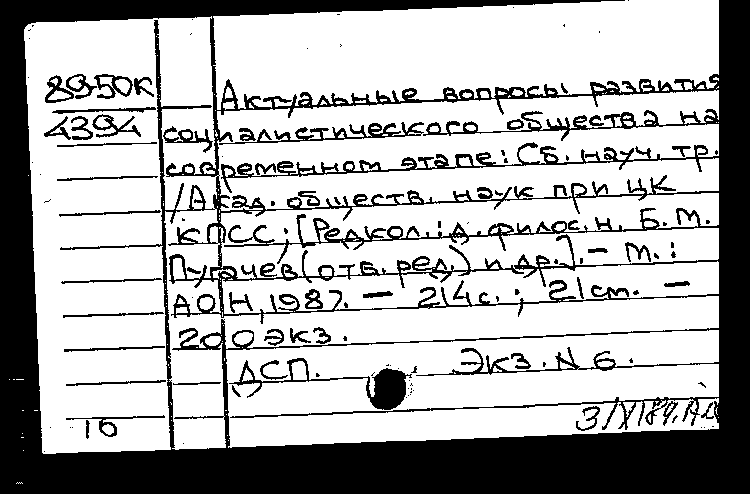 8950к Актуальные вопросы развития
4394 социалистического общества на
современном этапе: Сб. науч. тр.
/Акад. обществ. наук при ЦК
КПСС; [Редкол.: д. филос. н. Б. М.
Пугачев (отв. ред.) и др.]. - М.:
АОН, 1987. - 214 с.; 21 см. -
200 экз.
ДСП. Экз. N 6.
16